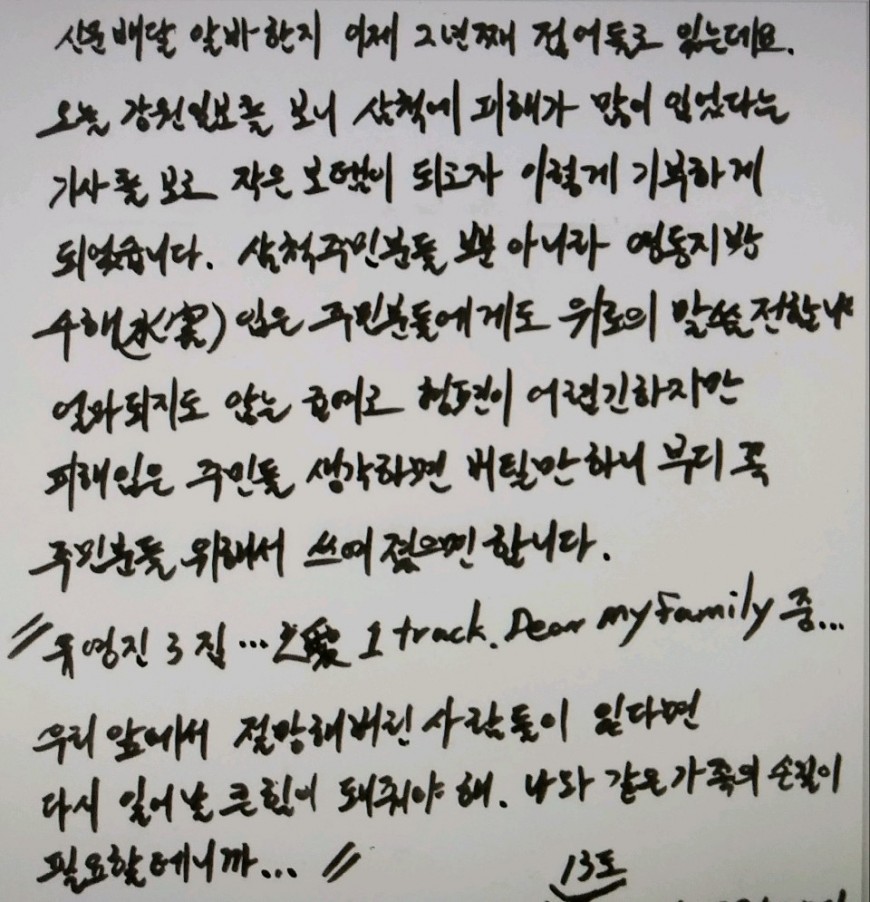 신문배달 알바한지 이제 2년째 접어들고 있는데요.
오늘 강원일보를 보니 삼척에 피해가 많이 입었다는
기사를 보고 작은 보탬이 되고자 이렇게 기부하게
되었습니다. 삼척주민분들 뿐 아니라 영동지방
수해(水害) 입은 주민분들에게도 위로의 말씀전합니다
얼마되지도 않는 급여로 형편이 어렵긴하지만
피해입은 주민들 생각하면 버틸만하니 부디 꼭
주민분들 위해서 쓰여졌으면 합니다.
〃유영진 3집... 愛 1 track. Dear My Family 중...
우리 앞에서 절망해버린 사람들이 있다면
다시 일어날 큰힘이 돼줘야 해. 나와 같은 가족의 손길이
필요할테니까... 〃
13도